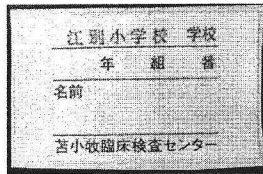 江別小学校 学校
年 組 番
名前
苫小牧臨床検査センター